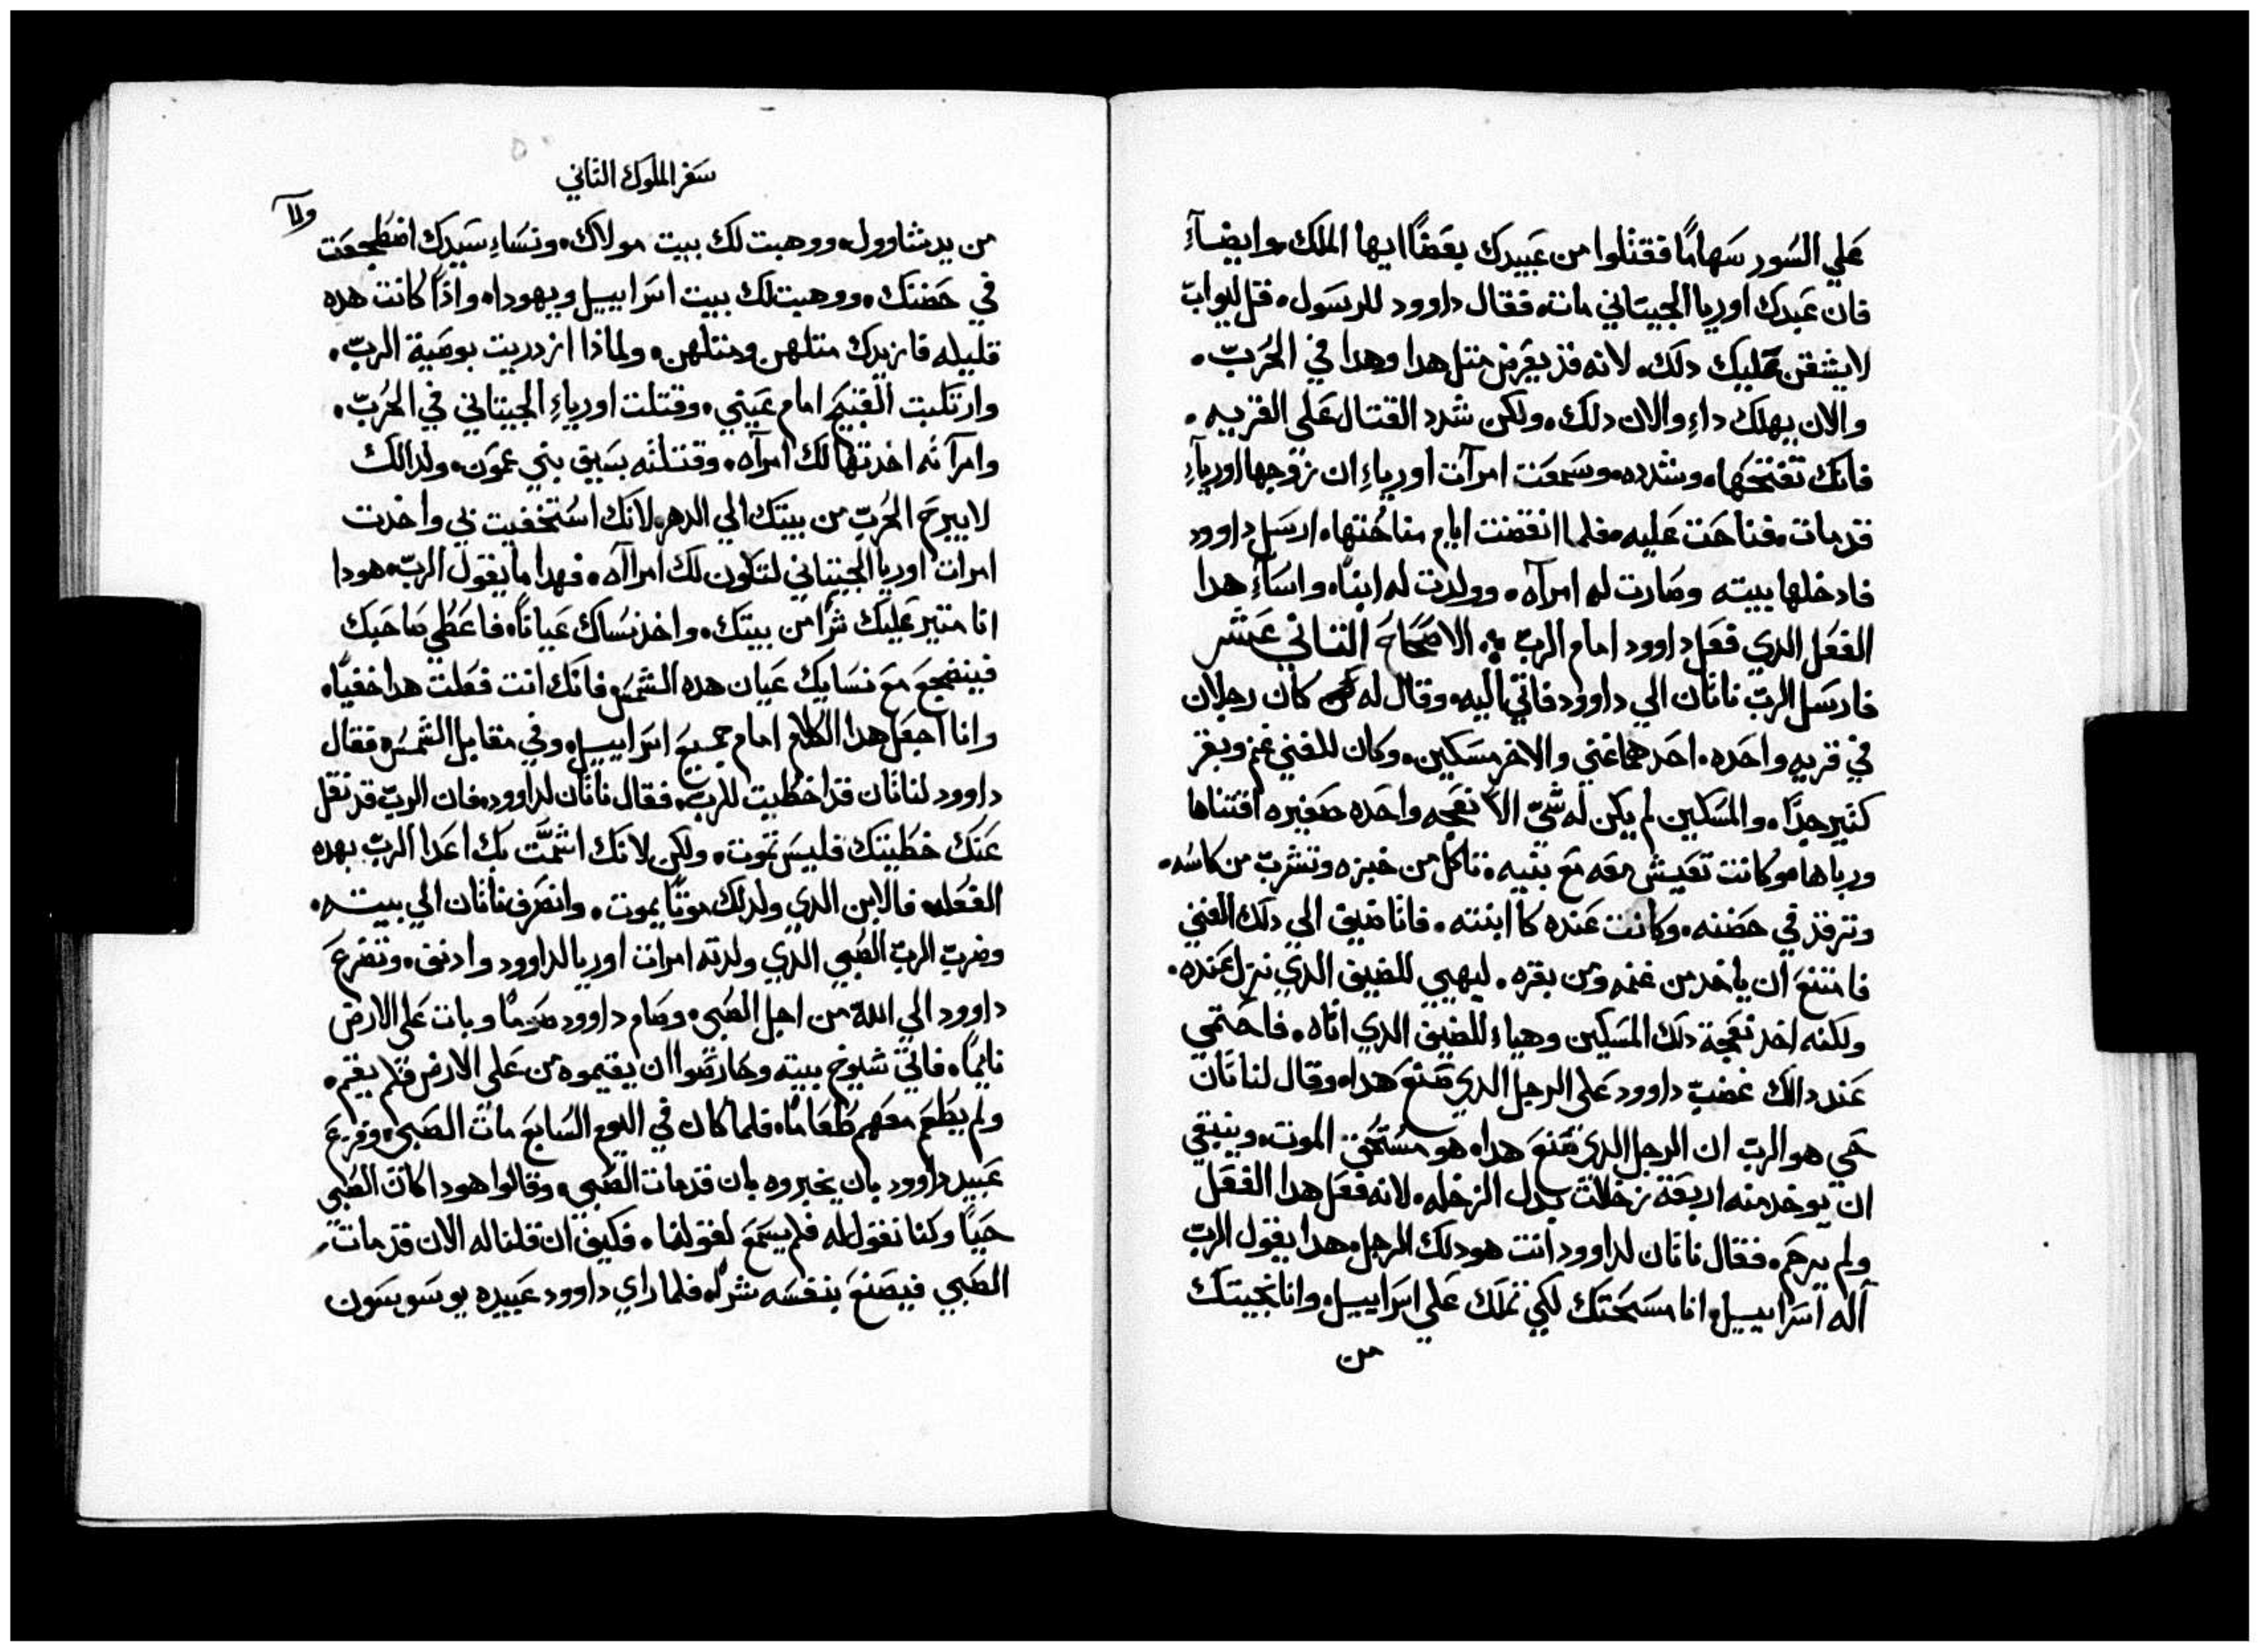 علي السور سهامًا فقتلوا من عبيدك بعضًا ايها الملك وايضآءِ
فان عبدك اوريا الجيتاني مات، فقال داوود للرسول، قل ليوابّ
لا يشقن عليك دلك، لانه قد يعرض متل هدا وهدا في الحُربّ.
والان يهلك داءِ والان دلك، ولكن شدد القتال علي القريه.
فانك تفتتحَها، وشدده، وسمعَت امرآت اورياءِ ان زوجها اوريآءِ
قد مات، فناحَت عَليه، فلما انقضت ايام مناحُتها، ارسَل داوود
فادخلها بيته وصَارت له امرآه. وولدت له ابنًا، واسَآءِ هدا
الفعَل الدي فعَل داوود امام الربّ ؞ الاصَحَاحَ التاني عَشر
فارسَل الربّ ناتان الي داوود فاتي اليه، وقال له كان رجلان
في قريه واحَده، احَدهما غني والاخر مسَكين، وكان للغني غنم وبقر
كتير جدًا، والمسَكين لم يكن له شيّ الا نعَجه واحَده صَغيره اقتناها
ورباها، وكانت تعَيش معَه مَع بنيه، تاكل من خبزه وتشربّ من كاسَه،
وترقد في حَضنه، وكانت عَنده كا ابنته. فاتا ضيف الي دلك الغني
فامتنعَ ان ياخد من غنمه ومن بقره. ليهيي للضيف الدي نزل عَنده.
ولكنه اخد نعَجة دلك المسَكين وهياءِ للضيف الدي اتاه. فاحَتمي
عَند دالك غضبّ داوود عَلي الرجل الدي صَنعَ هدا، وقال لناتان
حَي هو الربّ ان الرجل الدي صَنعَ هدا، هو مسَتحَق الموت، وينبغي
ان يوخد منه اربعَة زخلات بدل الزخله، لانه فعَل هدا الفعَل
ولم يرحَم، فقال ناتان لداوود انت هو دلك الرجل، هدا يقول الربّ
آله اسَراييل، انا مسَحَتك لكي تملك عَلي اسَراييل، وانا نجيتك
من
سَفر الملوك التاني
من يد شاوول، ووهبت لك بيت مولاك، ونسَاءِ سَيدك اضطجعَت
في حَضنك، ووهبت لك بيت اسَراييل ويهودا، واذًا كانت هده
قليله فازيدك متلهن ومتلهن، ولماذا ازدريت بوصَية الربّ.
وارتكبت القبيحَ امام عَيني، وقتلت اورياءِ الجيتاني في الحُربّ.
وامرآته اخدتها لك امرآه، وقتلته بسَيف بني عمَون، ولدالك
لا يبرحَ الحُربّ من بيتك الي الدهر، لانك استخفيت بي واخدت
امرات اوريا الجيتاني لتكون لك امراآه، فهدا ما يقول الربّ، هودا
انا متير عَليك شرًا من بيتك، واخد نسَاك عَيانًا، فاعَطي صَاحَبك
فينضجعَ معَ نسَايك عَيان هده الشمسَ، فانك انت فعَلت هدا خفيًا،
وانا اجعَل هدا الكلام امام جميعَ اسَراييل، وفي مقابل الشمسَ، فقال
داوود لناتان قد اخطيت للربّ، فقال ناتان لداوود، فان الربّ قد نقل
عَنك خطيتك فليسَ تموت، ولكن لانك اشمَّت بك اعَدا الربّ بهده
الفعَله، فالابن الدي ولد لك موتًا يموت. وانصَرف ناتان الي بيته،
وضربّ الربّ الصَبي الدي ولدته امرات اوريا لداوود وادنف، وتضرعَ
داوود الي الله من اجل الصَبي، وصَام داوود صَومًا وبات عَلي الارض
نايمًا، فاتي شيوخ بيته وحَارصَوا ان يقيموه من عَلي الارض فلم يقم،
ولم يطعَم معَهم طعَامًا، فلما كان في اليوم السَابعَ مات الصَبي، وفزعَ
عَبيد داوود بان يخبروه بان قد مات الصَبي، وقالوا هودا كان الصَبي
حَيًا وكنا نقول له فلم يسَمعَ لقولنا، فكيف ان قلنا له الان قد مات
الصَبي فيصَنعَ بنفسَه شر، فلما راي داوود عَبيده يوسَوسَون